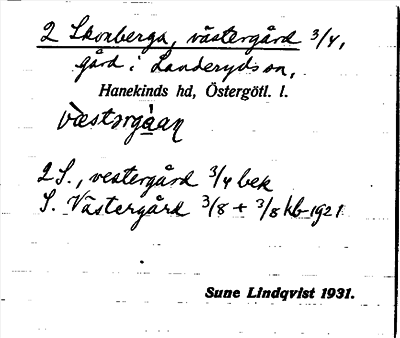 2 Skonberga, västergård 3/4,
gård i Landeryds sn,
Hanekinds hd, Östergötl. l.
væstərgàan
2 S., vestergård 3/4 bek
S. Västergård 3/8 + 3/8 kb 1921
Sune Lindqvist 1931.